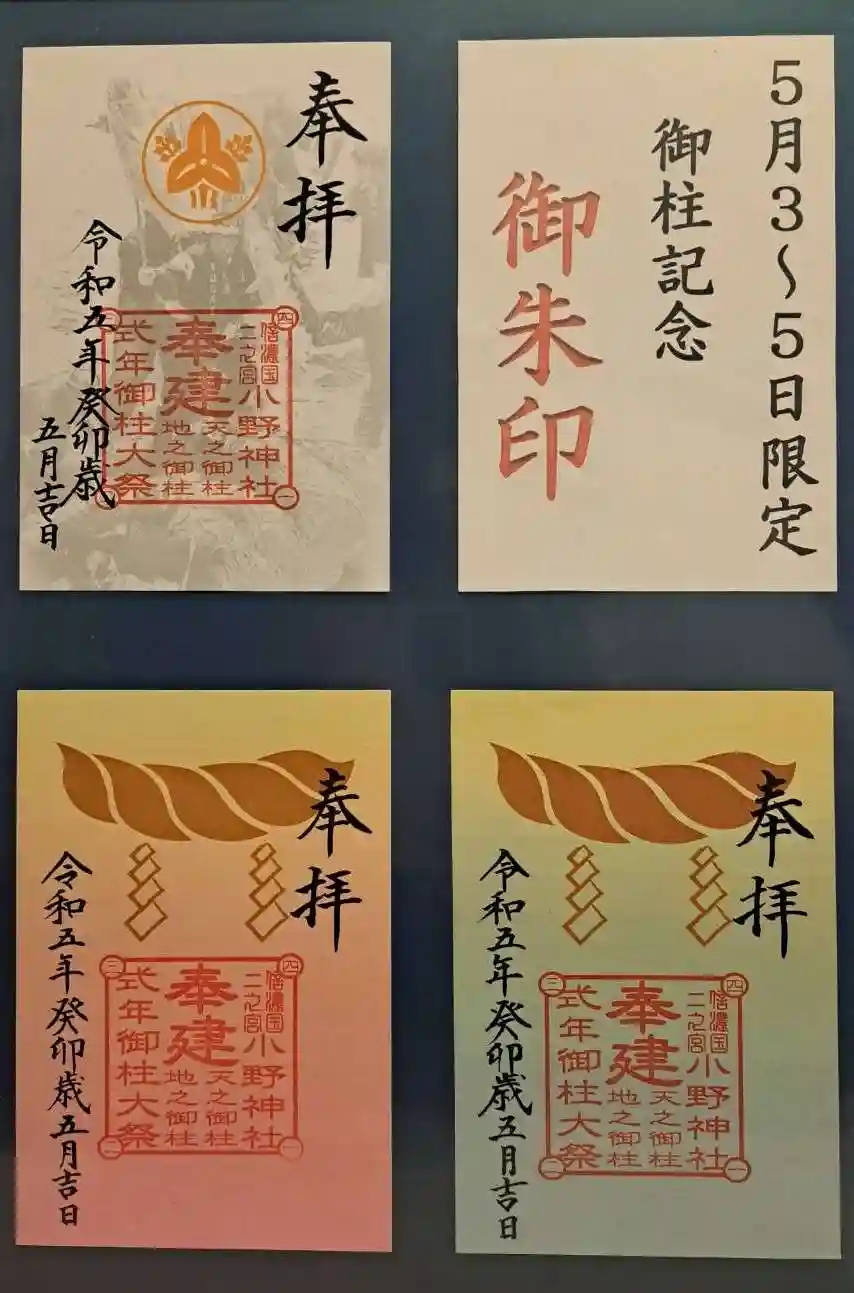 奉拝
四
信濃国
二之宮
小野神社
奉建
天之御柱
地之御柱
三
式年御柱大祭
一
令和五年癸卯歳
五月吉日
5月3〜5日限定
御柱記念
御朱印
奉拝
四
信濃国
二之宮
小野神社
奉建
天之御柱
地之御柱
三
式年御柱大祭
二
一
令和五年癸卯歳五月吉日
奉拝
四
信濃国
二之宮
小野神社
奉建
天之御柱
地之御柱
三
式年御柱大祭
二
一
令和五年癸卯歳五月吉日